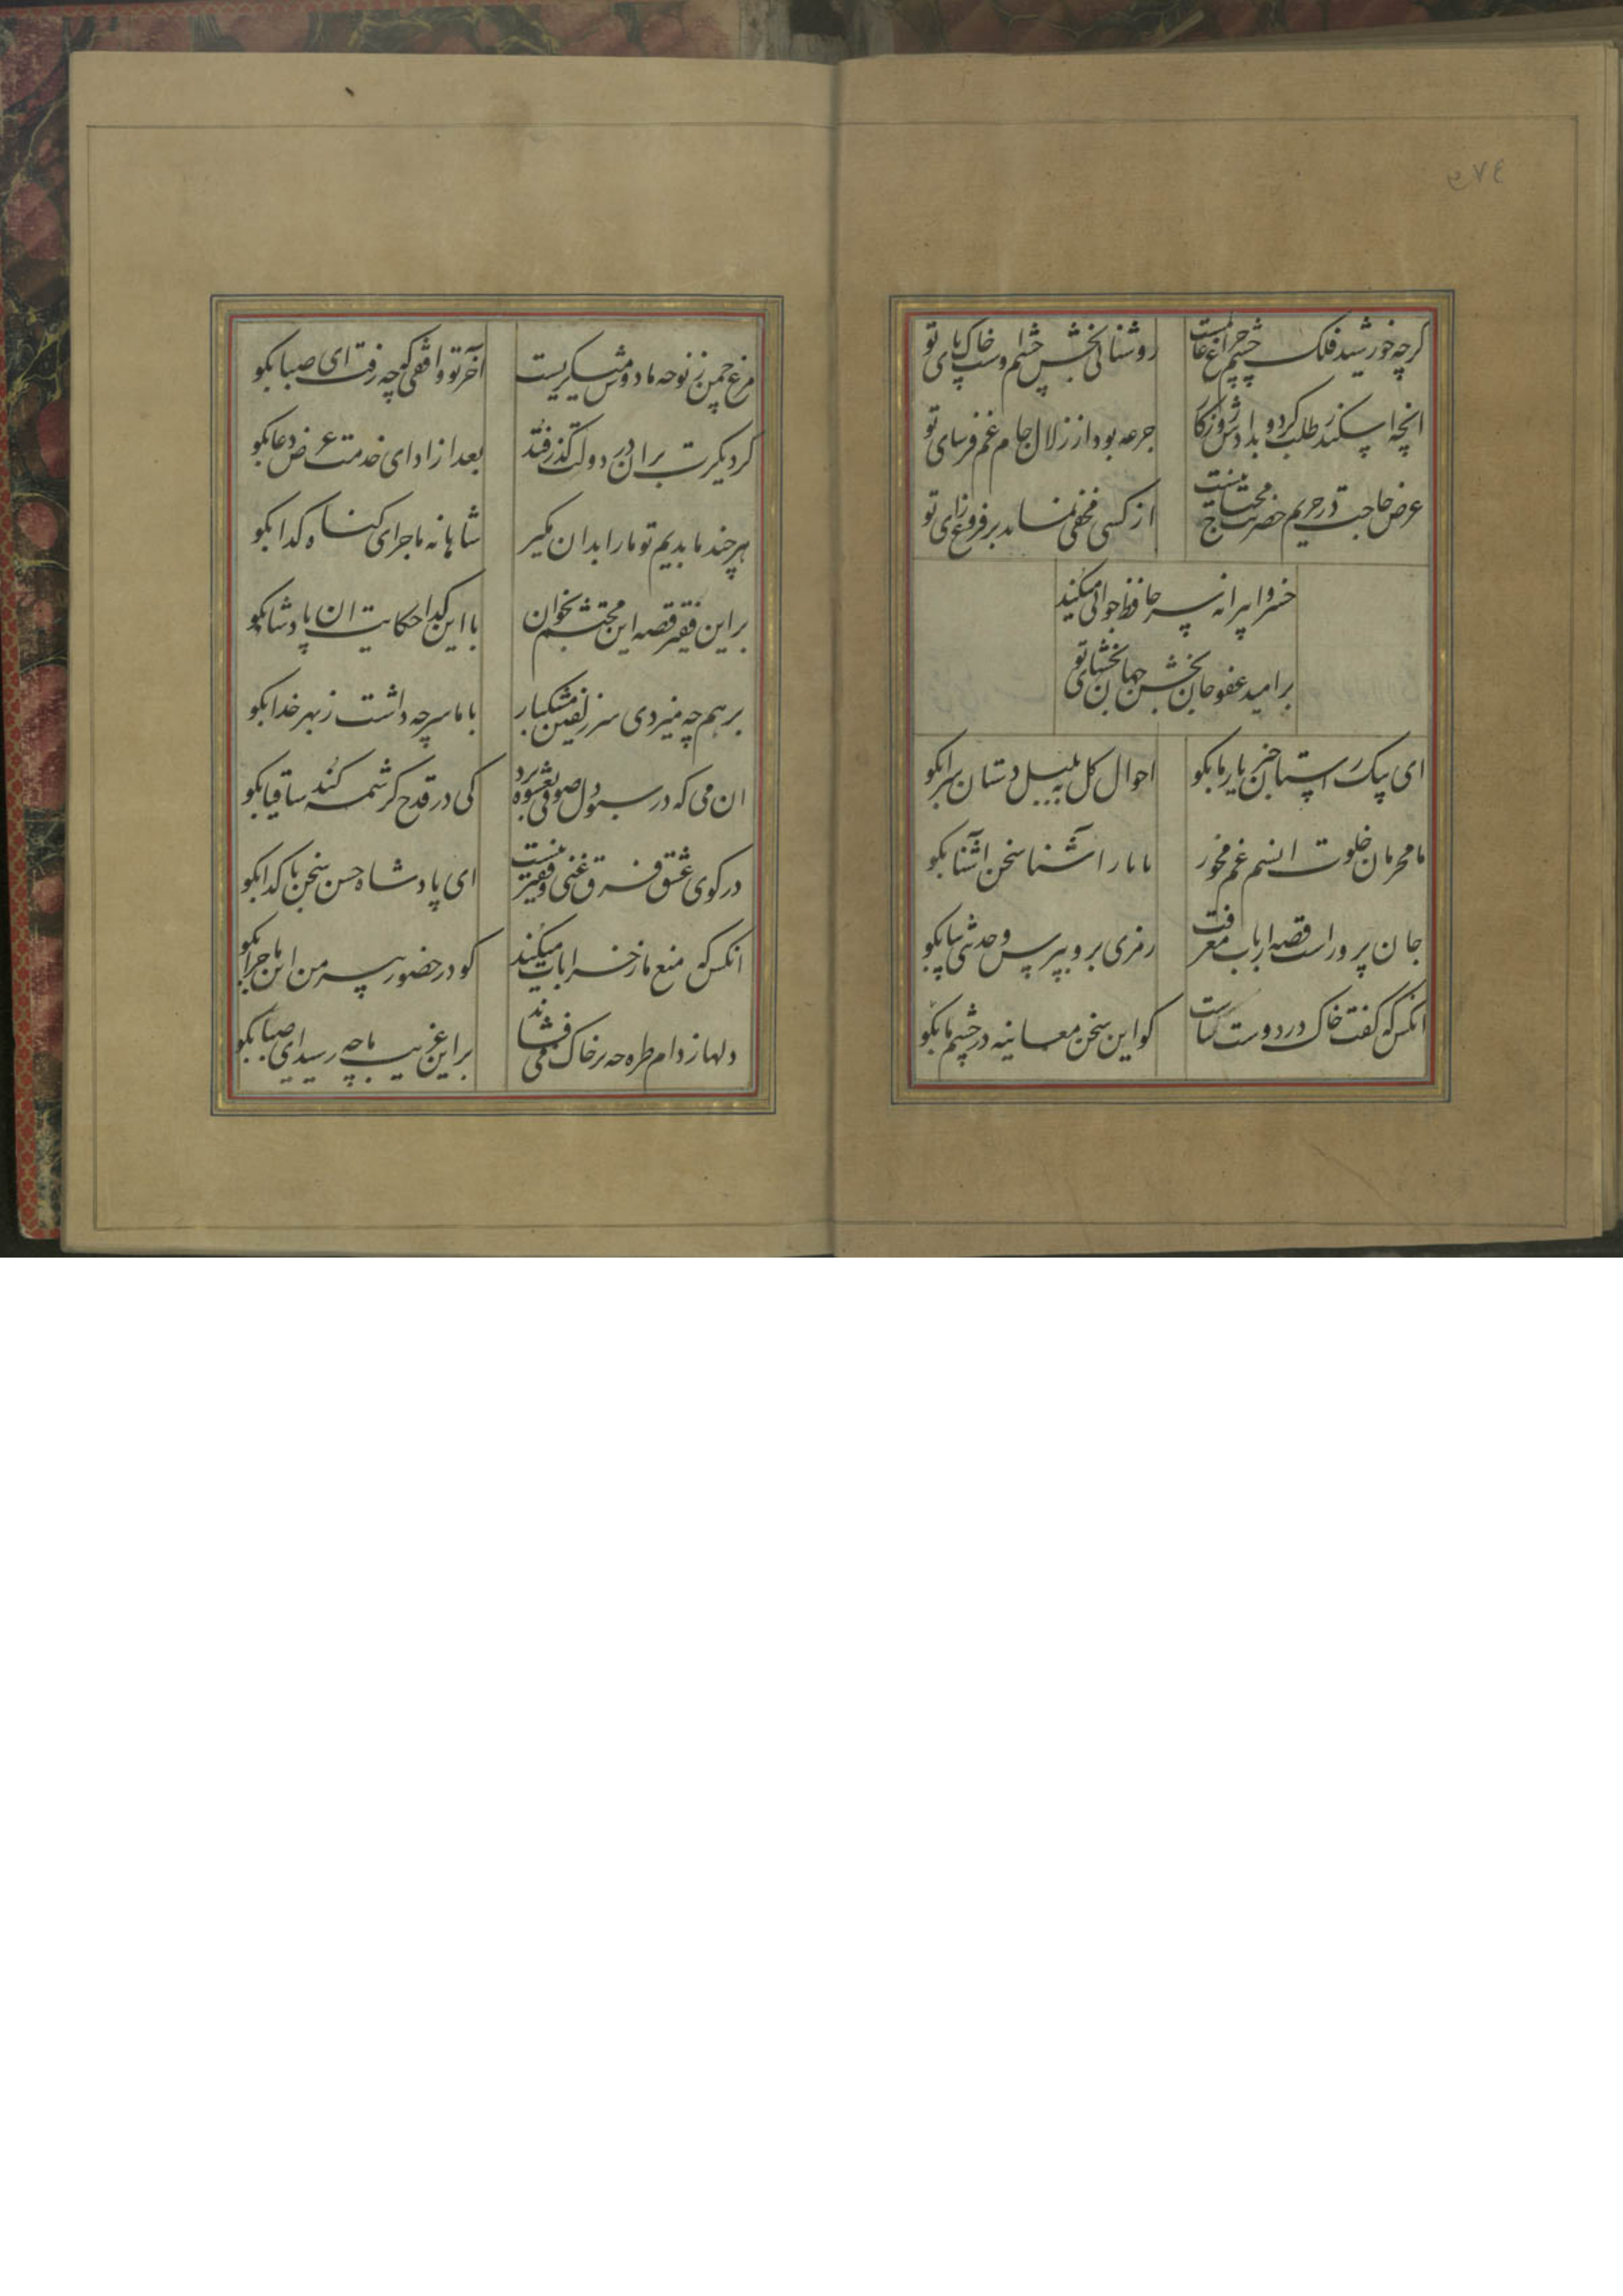 ٤٧٤
کرچه خورشید فلک چشم و چراغ عالمست روشنائی بخش چشم اوست خاک پای تو
انچه اسکندر طلب کرد و ندادش روزکار جرعه بود از زلال جام غم فرسای تو
عرض حاجت در حریم حضرتت محتاج نیست از کسی مخفی نماند بر فروغ رای تو
خسروا پیرانه سر حافظ جوانی میکند
بر امید عفو جان بخش جهان بخشای تو
ای پیک راستان خبر یار ما بکو احوال کل به بلبل دستان سرا بکو
ما محرمان خلوت انسیم غم مخور با یار اشنا سخن اشنا بکو
جان پرور است قصه ارباب معرفت رمزی برو بپرس و حدیثی بیا بکو
انکس که کفت خاک در دوست توتیاست کو این سخن معاینه در چشم ما بکو
مرغ چمن ز نوحه ما دوش میکریست آخر تو واقفی که چه رفت ای صبا بکو
کر دیکرت بران در دولت کذر فتد بعد از ادای خدمت عرض دعا بکو
هر چند ما بدیم تو ما را بدان مکیر شاهانه ماجرای کناه کدا بکو
بر این فقیر قصه این محتشم بخوان با این کدا حکایت ان پادشا بکو
بر هم چه میزدی سر زلفین مشکبار با ما سر چه داشت ز بهر خدا بکو
ان می که در سبو دل صوفی بعشوه برد کی در قدح کرشمه کند ساقیا بکو
در کوی عشق فرق غنی و فقیر نیست ای پادشاه حسن سخن با کدا بکو
انکس که منع ما ز خرابات میکند کو در حضور پیر من این ماجرا بکو
دلها ز دام طره چه بر خاک می فشاند بر این غریب ما چه رسید ای صبا بکو